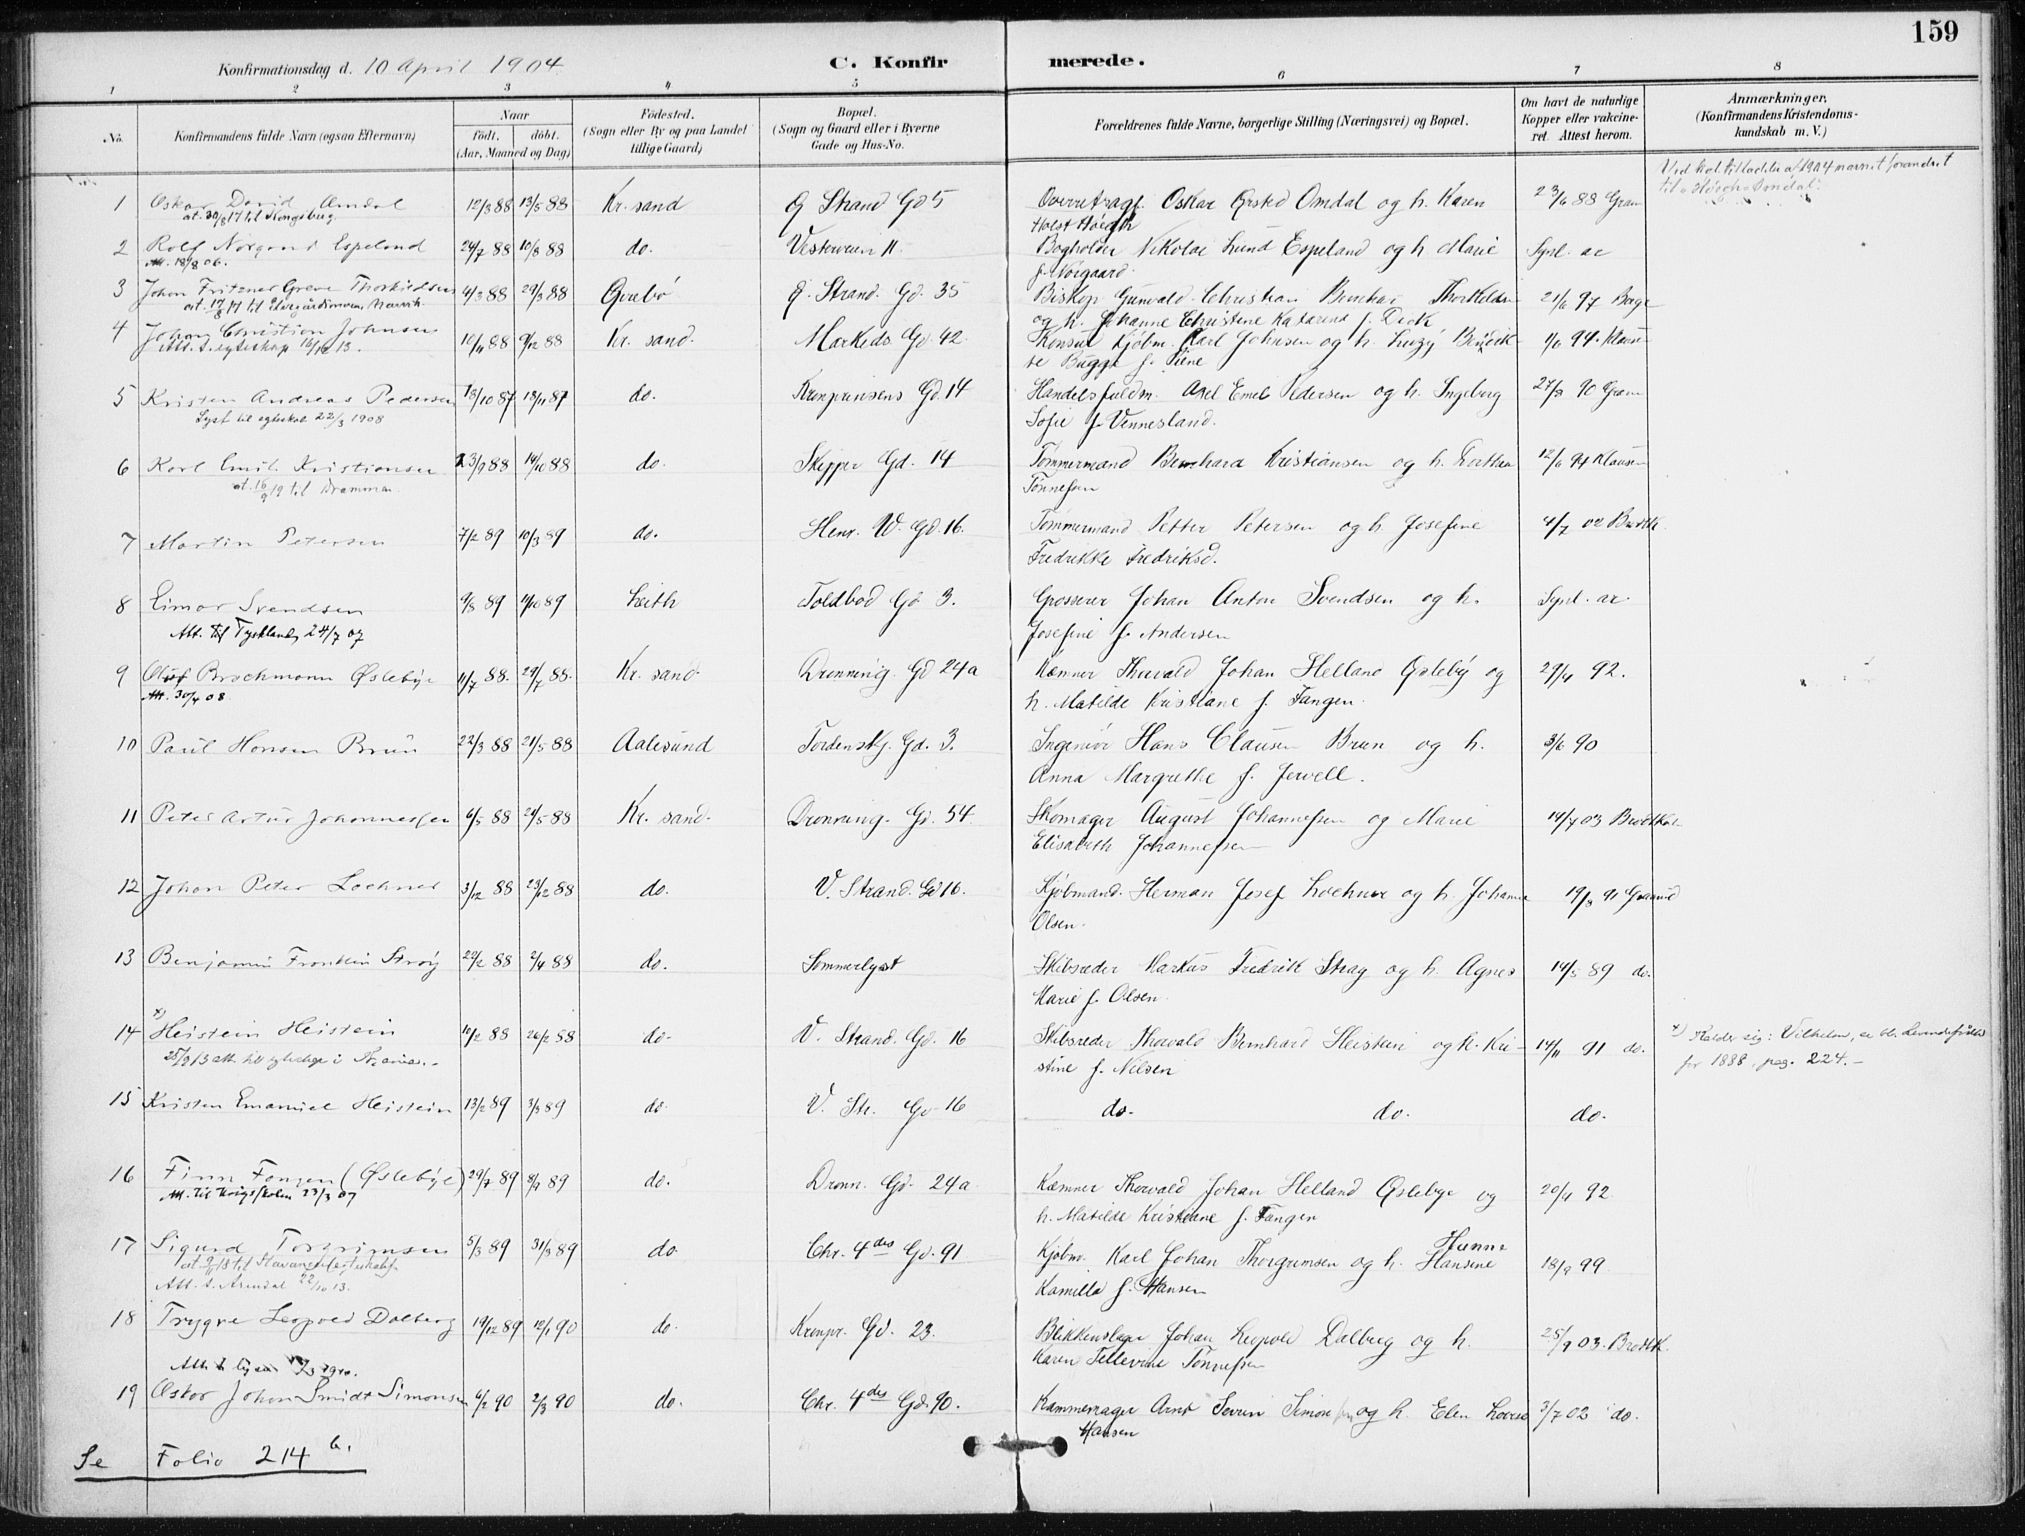 159
Konfirmationsdag d. 10 April 1904.
C. Konfirmerede.
1 2 3 4 5 6 7 8
No. Konfirmandens fulde Navn (ogsaa Efternavn) Naar født. døbt. (Aar, Maaned og Dag) Fødested. (Sogn eller By og paa Landet tillige Gaard) Bopæl. (Sogn og Gaard eller i Byerne Gade og Hus-No. Forældrenes fulde Navne, borgerlige Stilling (Næringsvei) og Bopæl. Om havt de naturlige Kopper eller vakcineret. Attest herom. Anmærkninger. (Konfirmandens Kristendomskundskab m. V.)
1 Oskar David Omdal 12/3 88 13/5 88 Kr. sand Ø Strand Gd 5 Overretssagf. Oskar Ørsted Omdal og h. Karen 23/6 88 Gram
at. 30/8 17 til Kongsberg Holst Høegh
2 Rolf Norgaard Espeland 24/7 88 10/8 88 do. Vesterveien 11. Bogholder Nikolai Lund Espeland og h Marie Synl. ar
Att. 18/8 06. f. Norgaard.
3 Johan Fritzner Greve Thorkildsen 4/3 88 29/3 88 Ø. Strand. Gd. 35 Biskop Gunvald Christian Bernhard Thorkildsen 21/6 97 Berge
og h. Johanne Christine Katarina f. Dick
4 Johan Christian Johnsen 10/11 88 9/12 88 Kr. sand. Markeds Gd. 42. Konsul Kjøbm. Karl Johnsen og h. 1/6 94. Klausen
Att. t. egteskap 16/12 13. Bugge f. Piene
5 Kristen Andreas Pedersen 18/10 87 18/11 87 do. Kronprinsens Gd. 14 Handelsfuldm. Axel Emil Pedersen og h. Ingeborg 27/8 90 Gram
Lyst til egteskab 22/3 1908 Sofie f. Vennesland.
6 Karl Emil Kristiansen 23/9 88 14/10 88 do. Skipper Gd. 14 Tømmermand Bernhard Kristiansen og h. Dorthea 12/6 94 Klausen
at. 16/9 19 til Drammen. Tønnesen
7 Martin Petersen 7/2 89 10/3 89 do. Henr. W. Gd. 16. Tømmermand Petter Petersen og h. Josefine 4/7 02 Brodtk.
Fredrikke Fredriksd.
8 Einar Svendsen 9/8 89 11/10 89 Leith Toldbod Gd 3. Grosserer Johan Anton Svendsen og h. Synl. ar.
Att. til Tyskland 24/7 07 Josefine f. Andersen
9 Oluf Brochmann Øslebye 11/7 88. 29/7 88. Kr. sand. Dronning. Gd 24a Kæmner Thorvald Johan Helland Øsleby og 29/4 92.
Att. 30/4 08. h. Matilde Kristiane f. Fangen.
10 Paul Hansen Brun 22/3 88 21/5 88 Aalesund Tordenskj. Gd. 3. Ingeniør Hans Clausen Brun og h. 3/6 90
Anna Margrethe f. Jervell.
11 Peter Artur Johannessen 6/5 88 21/5 88 Kr. sand. Dronning. Gd. 54 Skomager August Johannessen og Marie 14/7 03 Brodtkorb
Elisabeth Johannessen
12 Johan Peter Lochner 3/12 88 23/12 88 do. V. Strand. Gd 16. Kjøbmand. Herman Josef Lochner og h. Johanne 19/8 91
Olsen.
13 Benjamin Franklin Stray 22/2 88 2/4 88 do. Sommerlyst Skibsreder Markus Fredrik Stray og h. Agnes 14/5 89 do.
Marie f. Olsen.
14 x) Heistein Heistein 10/2 88 26/2 88 do. V. Strand. Gd. 16 Skibsreder Thorvald Bernhard Heistein og h. Kri- 14/11 91 do.
25/9 13 att. til stine f. Nilsen
15 Kristen Emanuel Heistein 13/2 89 3/3 89 do. V. Str. Gd 16 do. do. do.
16 Finn Fangen (Øslebye) 29/7 89 8/9 89 do. Dronn. Gd. 24a Kæmner Thorvald Johan Helland Øslebye og 20/4 92
Att. til Krigsskolen 23/3 07 h. Matilde Kristiane f. Fangen
17 Sigurd Torgrimsen 5/3 89 31/3 89 do. Chr. 4des Gd. 91 Kjøbm. Karl Johan Thorgrimsen og h. Hanna Hansine 18/9 99
Att. t. Arendal 22/10 13. Kamilla f. Hansen
18 Trygve Leopold Dalberg 19/12 89 12/1 90 do. Kronpr. Gd. 23. Blikkenslager Johan Leopold Dalberg og h. 25/9 03. Brodtk.
Karen Tellevine Tønnesen
19 Oskar Johan Smidt Simonsen 4/2 90 2/3 90 do. Chr. 4des Gd. 90. Kammemager Arnt Severin Simonsen og h. Elen Lovise 3/7 02 do.
Hansen
til "Høegh-Omdal".
x) Kalder sig: Vilhelm, se bl. Levendefødte
for 1888, pag. 224.–
Se Folio 214 b.